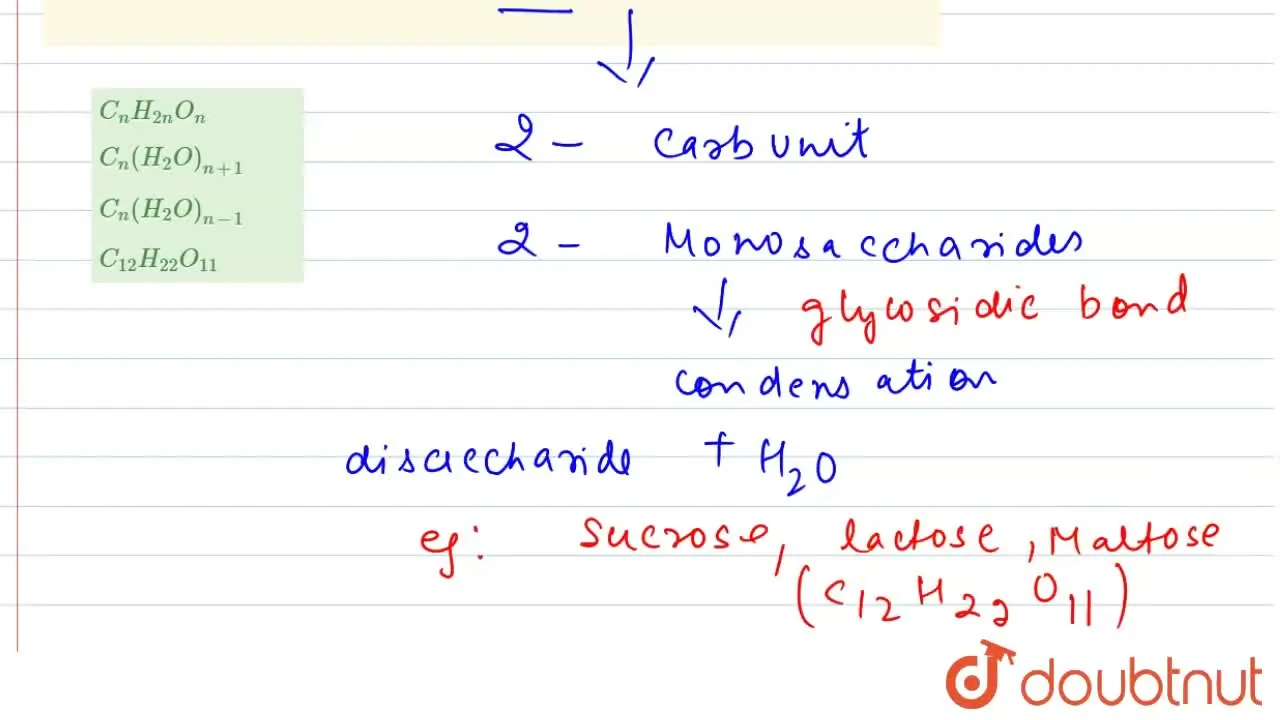 CₙH₂ₙOₙ
Cₙ(H₂O)ₙ₊₁
Cₙ(H₂O)ₙ₋₁
C₁₂H₂₂O₁₁
2 - Carb unit
2 - Monosaccharides
glycosidic bond
condensation
disaccharide + H₂O
eg: Sucrose, lactose, Maltose
(C₁₂H₂₂O₁₁)
doubtnut